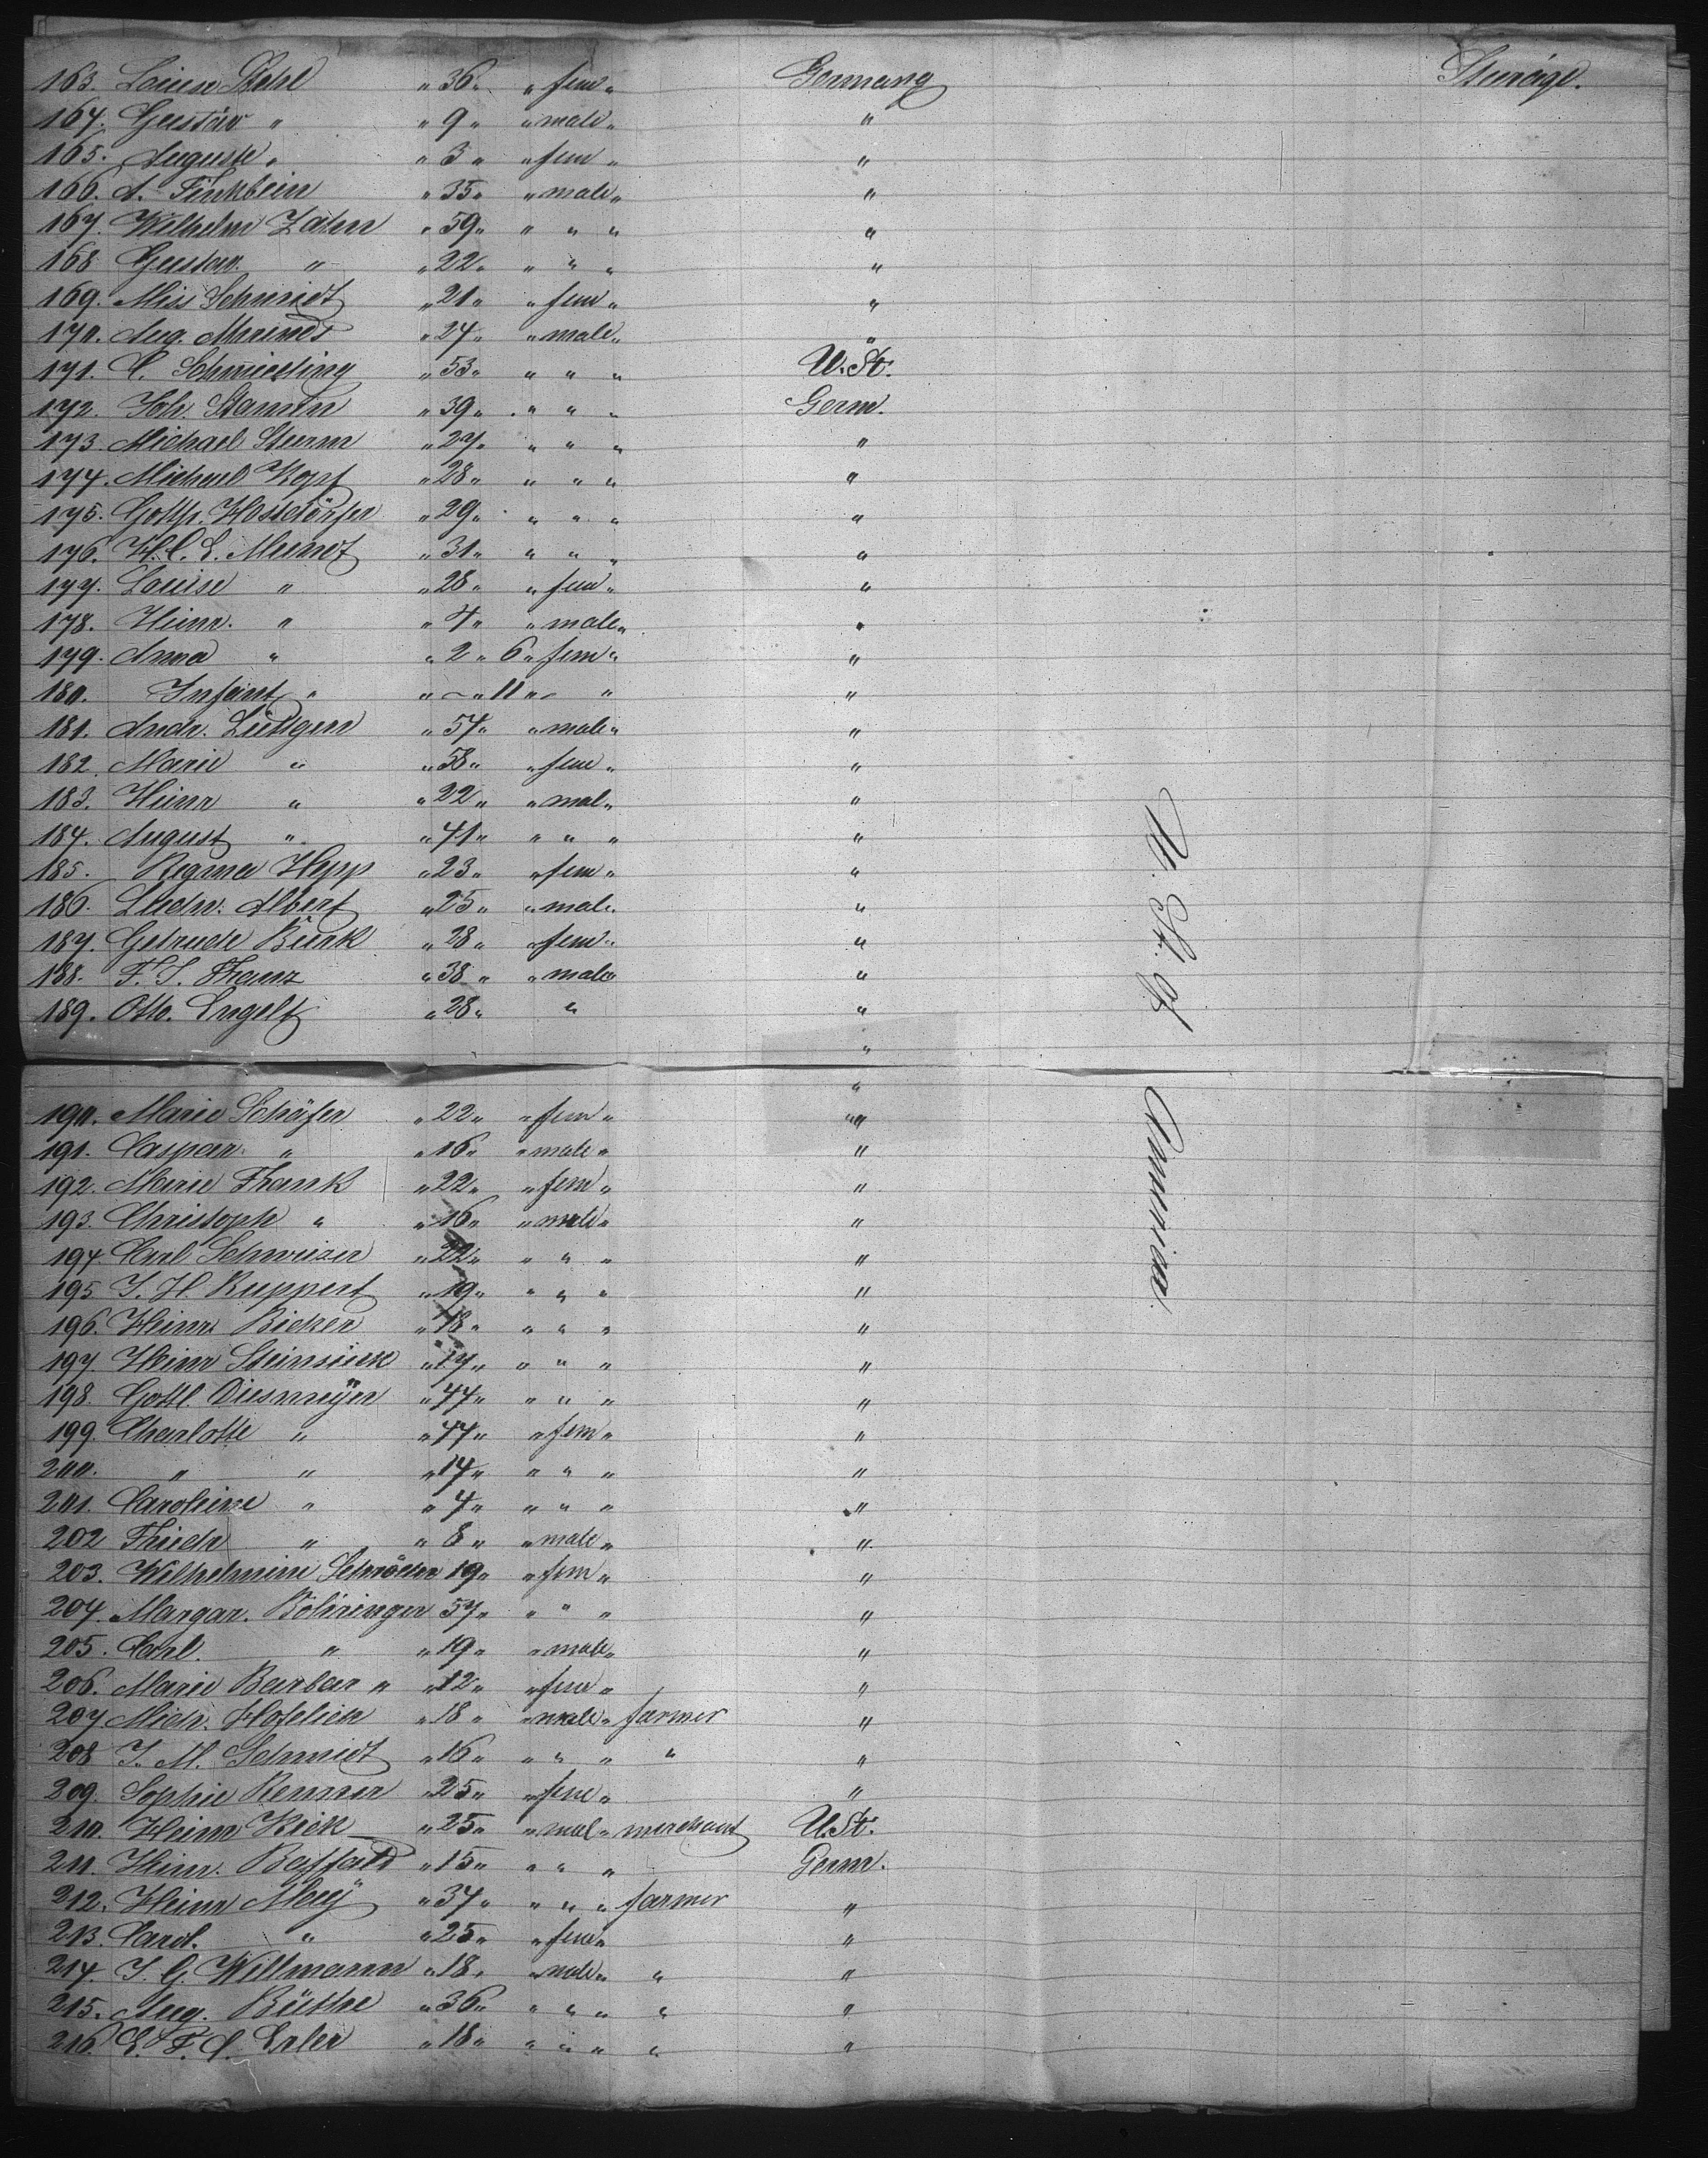 163. Louise Stehl " 36 " " fem " Germany Steerage.
164. Gustav " " 9 " " male " "
165. Auguste " " 3 " " fem " "
166. A. Finkbein " 35 " " male " "
167. Wilhelm Zahn " 59 " " " " "
168 Gustav. " " 22 " " " " "
169. Miss Schmidt " 21 " " fem " "
170. Aug. " 24 " " male " "
171. C. Schmieding " 53 " " " " U. St.
172. Joh. Stamm " 39 " " " " Germ.
173 Michael Sturm " 27 " " " " "
174. Michael Kopf " 28 " " " " "
175. Gottfr. " 29 " " " " "
176. H. C. L. Meindt " 31 " " " " "
177. Louise " " 28 " " fem " "
178. Heinr. " " 4 " " male " "
179. Anna " " 2 " 6 " fem " "
180. Infant " " – " 11 " " "
181. Andr. Lüttgen " 54 " " male " "
182. Marie " " 58 " " fem " "
183. Heinr " " 22 " " mal " "
184. August " " 41 " " " " "
185. Regina Hepp " 23 " " fem " "
186. Ludw. Albert " 25 " " mal " "
187. Getrude Bürk " 28 " " fem " "
188. F. J. Franz " 38 " " male "
189. Otto. Engelt " 28 " " "
"
"
190. Marie Schäfer " 22 " " fem " "
191. Caspar. " " 16 " " male " "
192. Marie Frank " 22 " " fem " "
193. Christoph " " 16 " " male " "
194. Carl Schweizer " 22 " " " " "
195 J. H. Ruppert " 19 " " " " "
196. Heinr Bicker " 18 " " " " "
197 Heinr Steinsiek " 17 " " " " "
198. Gottl. Diesmeÿer " 44 " " " " "
199. Charlotte " " 44 " " fem " "
200. " " " 14 " " " " "
201. Caroline " " 4 " " " " "
202 Friedr " " 8 " " male " "
203. Wilhelmine Schröder 19 " " fem " "
204. Margar. Böhringer 57 " " " " "
205. Carl. " " 19 " " male " "
206. Marie Barbar " " 12 " " fem " "
207 Mich. Hofelich " 18 " " male " farmer "
208 J. M. Schmidt " 16 " " " " " "
209. Sophie Renner " 25 " " fem " "
210. Heinr Kick " 25 " " mal " merchant U. St.
211. Heinr. " 15 " " " " Germ.
212. Heinr Meÿ " 34 " " " " farmer "
213. Carol. " " 25 " " fem " "
214. J. G. Willmann " 18 " " male " " "
215. Aug. Büthe " 36 " " " " " "
216. E. F. C. Erler " 18 " " " " " "
U. St. of
America.